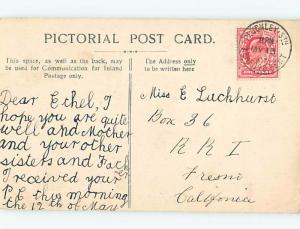 PICTORIAL POST CARD.
This space, as well as the back, may
be used for Communication for Inland
Postage only.
The Address only
to be written here
Dear Ethel, I
hope you are quite
well and Mother
and your other
sisters and Fath
I received your
P.C this morning
the 12th of May
Miss E Luckhurst
Box 36
R R I
Fresno
California